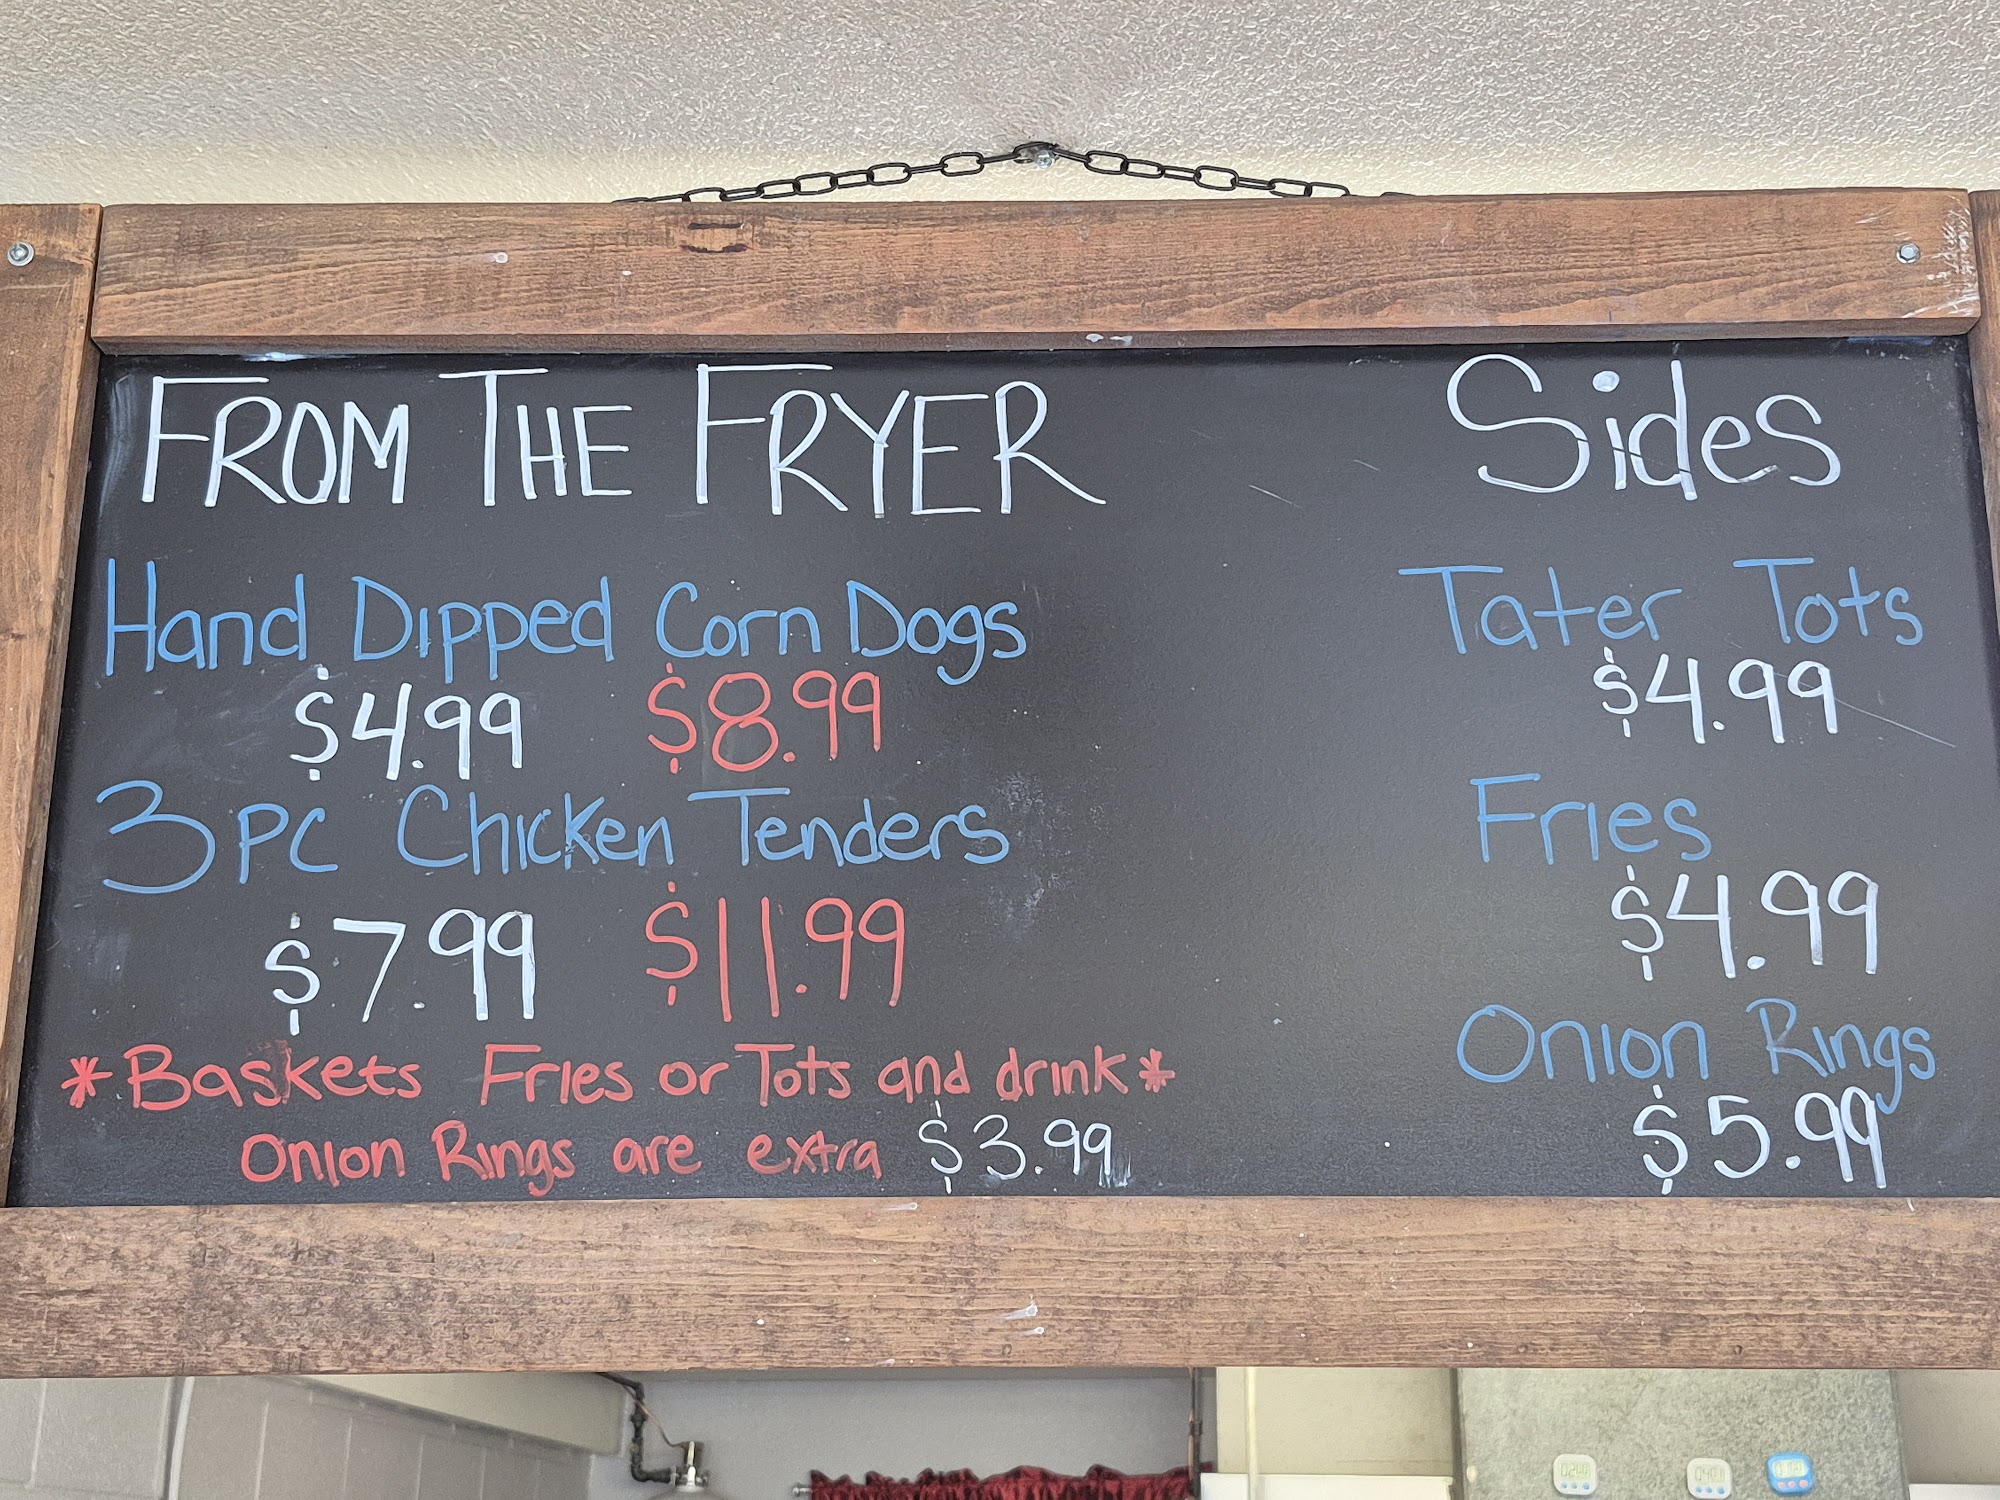 FROM THE FRYER
Hand Dipped Corn Dogs
$4.99 $8.99
3 PC Chicken Tenders
$7.99 $11.99
*Baskets Fries or Tots and drink*
Onion Rings are extra $3.99
Sides
Tater Tots
$4.99
Fries
$4.99
Onion Rings
$5.99